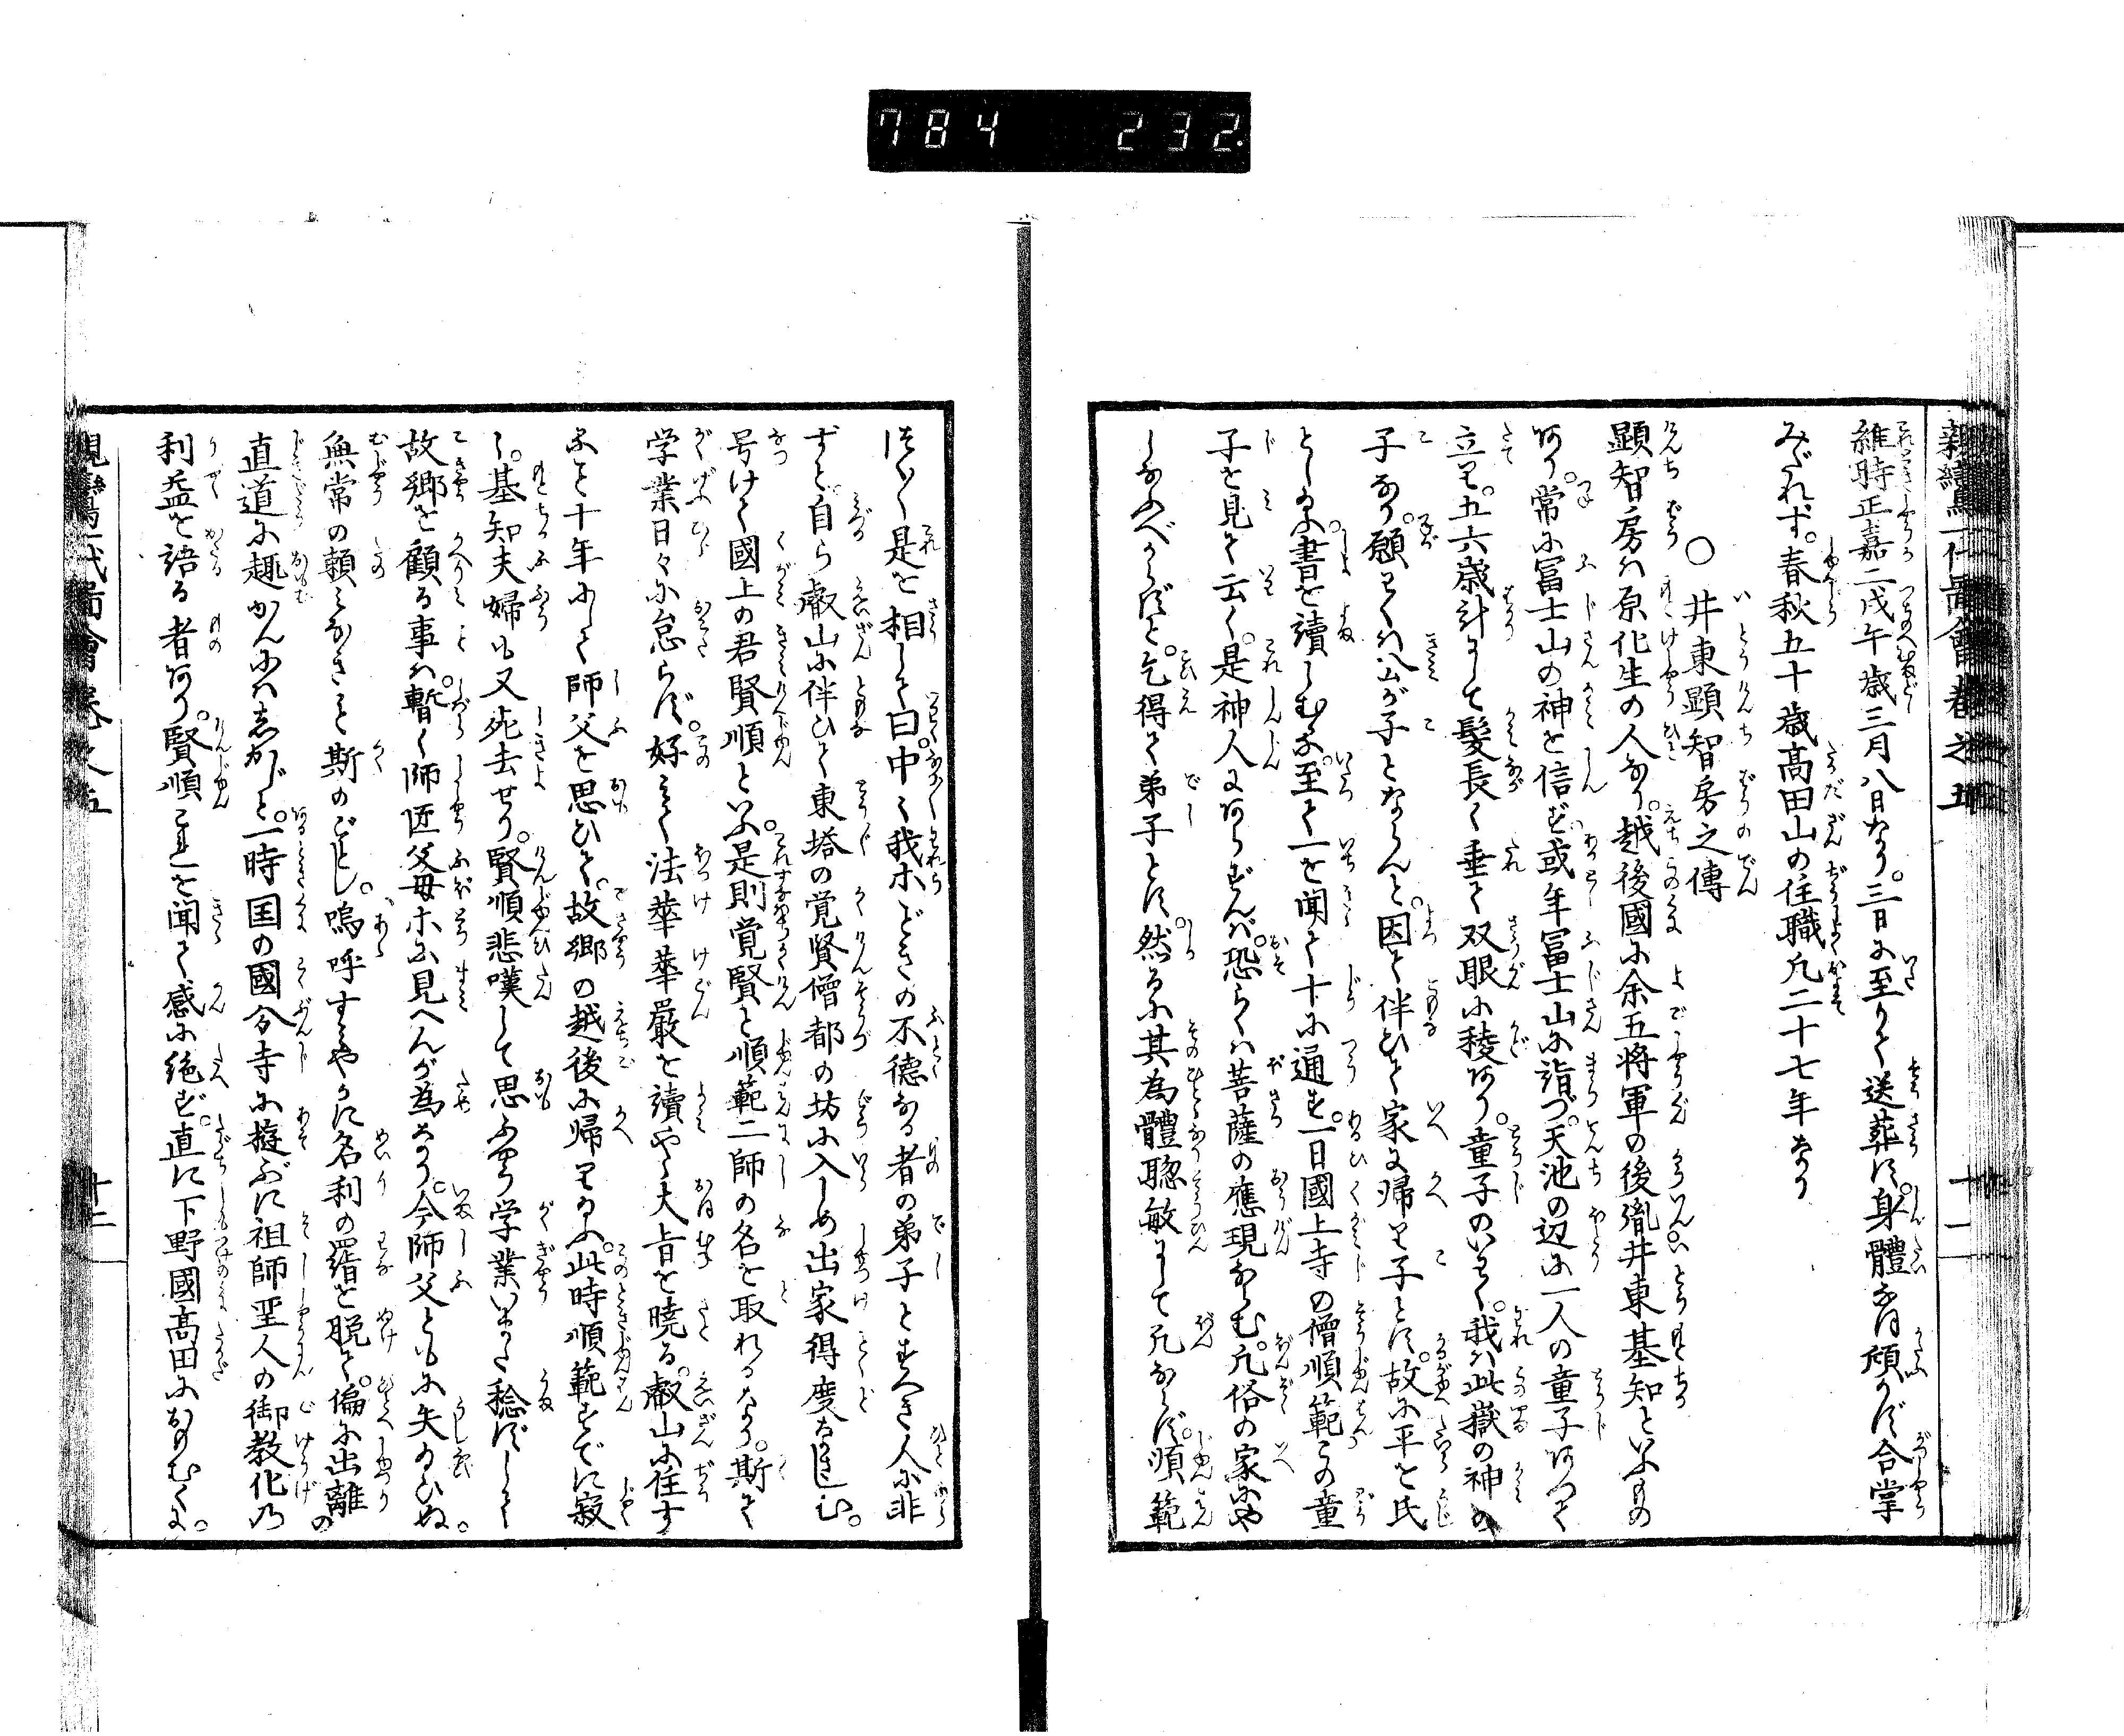 784 232
親鸞一代圖會巻之五 十一
維時正嘉二戊午歳三月八日なり。三日に至りて送葬に。身體なほ傾かず合掌
みだれず。春秋五十歳高田山の住職凡二十七年なり
○井東顕智房之傳
顕智房ハ原化生の人なり。越後國に余五将軍の後胤井東基知といふもの
あり。常に冨士山の神を信ず。或年冨士山に詣づ。天池の辺に一人の童子ありて
立り。五六歳計にして髪長く垂て双眼に稜あり。童子のいはく。我ハ此嶽の神の
子なり。願くハ公が子とならんと。因て伴ひて家に帰り子とす。故に平を氏
としるに書を讀しむるに至て一を聞て十に通ず。一日國上寺の僧順範この童
子を見て云く。是神人にあらずんバ。恐らくハ菩薩の應現ならむ。凡俗の家にや
しなふべからずと。乞得て弟子とす。然るに其為體聡敏にして凡ならず。順範
つらく是を相して曰。中〻我ホどきの不徳なる者の弟子とすべき人に非
ずと。自ら叡山に伴ひて東塔の覚賢僧都の坊に入しめ出家得度なさしむ。
号けて國上の君賢順といふ。是則覚賢と順範二師の名を取れるなり。斯て
学業日々に怠らず。好みて法華華嚴を讀やゝ大旨を暁る。叡山に住す
ること十年にして師父を思ひて。故郷の越後に帰りるに。此時順範すでに寂
し。基知夫婦も又死去せり。賢順悲嘆して思ふやう学業いまだ稔ずして
故郷を顧る事ハ。暫く師匠父母ホに見へんが為なり。今師父ともに失ひぬ。
無常の頼みなきこと斯のごとし。嗚呼すみやかに名利の羂を脱て。偏に出離の
直道に趣かんにハしかじと。一時国の國分寺に遊ぶに祖師聖人の御教化乃
利益を語る者あり。賢順これを聞て感に絶ず。直に下野國高田におもむくに。
親鸞一代圖會巻之五 十二